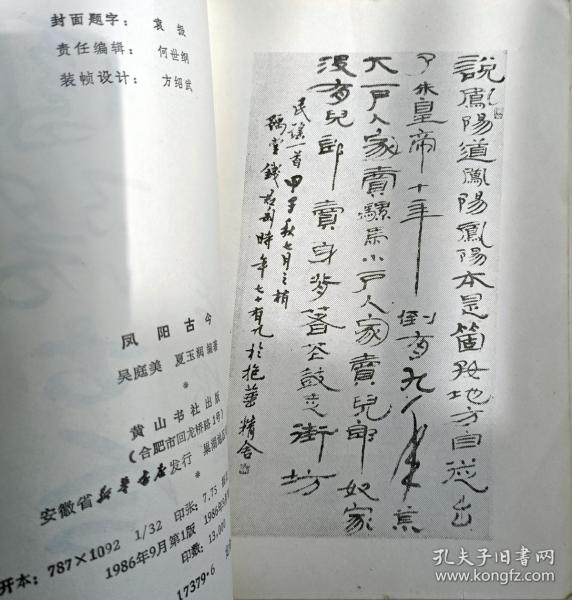 封面题字： 袁振
责任编辑： 何世纲
装帧设计： 方绍武
凤阳古今
吴庭美 夏玉润 编著
*
黄山书社出版
(合肥市回龙桥路1号)
安徽省新华书店发行 巢湖
*
开本：787×1092 1/32 印张：7.75
1986年9月第1版 1986年
印数：13,000
17379·6
說鳳陽道鳳陽鳳陽本是箇好地方自從出
了朱皇帝十年倒有九年荒
大戶人家賣騾馬小戶人家賣兒郎奴家
沒有兒郎賣身背著花鼓走街坊
民謠一首甲子秋七月之梢
時年七十有九於抱華精舍
孔夫子旧书网
www.kongfz.com